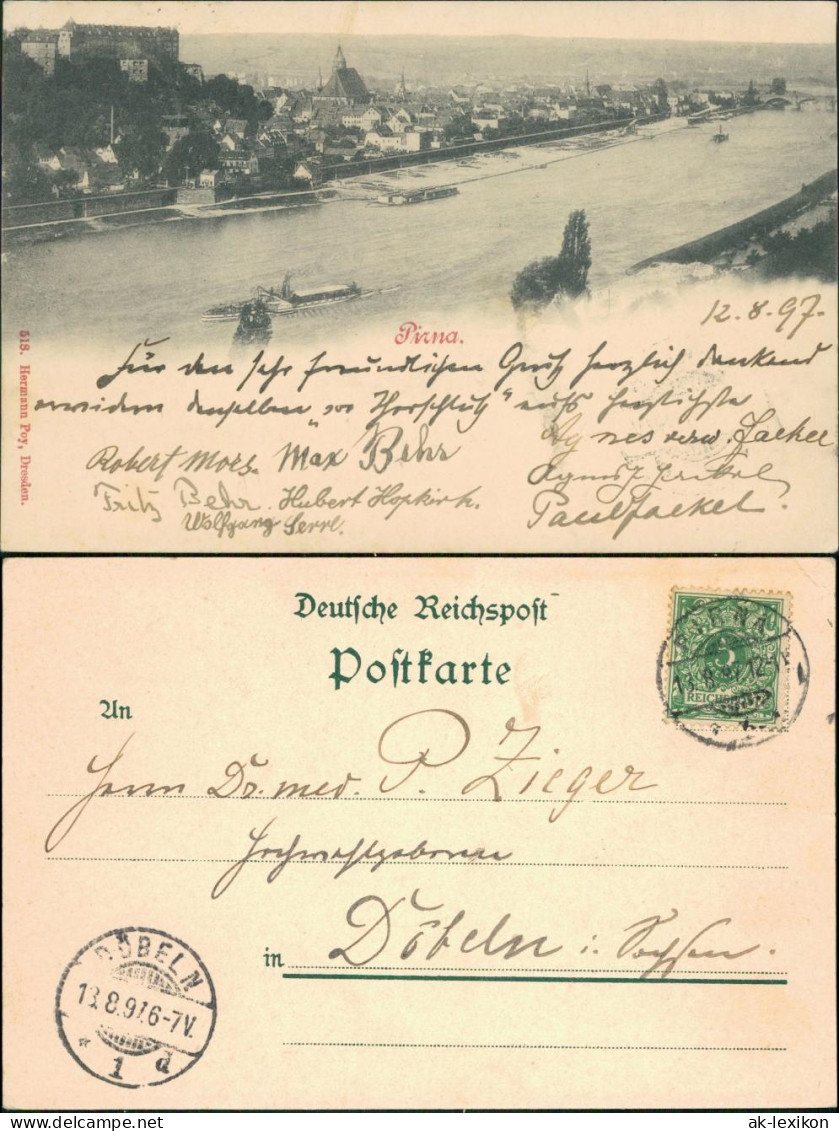 12.8.97.
Pirna.
518. Hermann Poy, Dresden.
Für den sehr freundlichen Gruß herzlich dankend
erwidern denselben aufs herzlichste
Robert Moes. Max Behr Agnes verw. Jaekel
Fritz Behr. Hubert Hopkirk.
Wolfgang Serrl. Paul Jaekel.
Deutsche Reichspost
Postkarte
An
PIRNA
13.8.97. 12-1
5
REICHSPOST
Herrn Dr. med. P. Zieger
Hochwohlgeboren
in Döbeln i. Sachsen.
DÖBELN
13.8.97. 6-7V.
* 1 d
ak-ansichtskarten.de
ak-lexikon